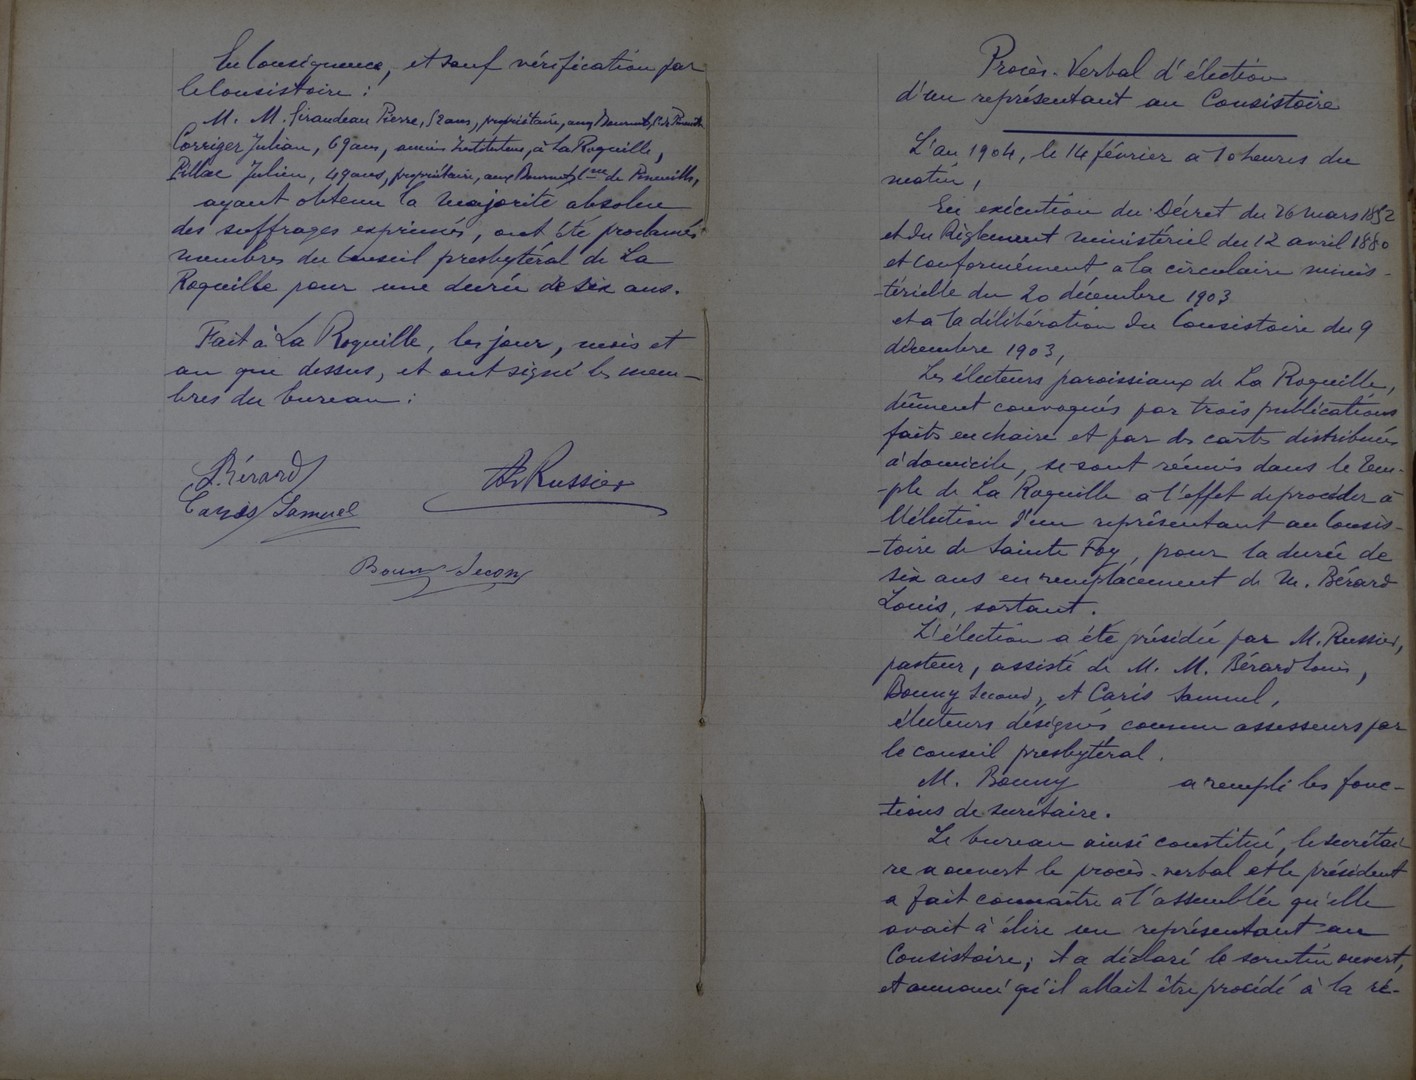 En Conséquence, et sauf vérification par
le Consistoire :
M. M. Giraudeau Pierre, 52 ans, propriétaire, aux Bournets,
Corriger Julien, 69 ans, ancien Instituteur, à La Roquille,
Pillac Julien, 49 ans, propriétaire, aux Bournets, Cne de
ayant obtenu la majorité absolue
des suffrages exprimés, ont été proclamés
membres du Conseil presbytéral de La
Roquille pour une durée de six ans.
Fait à La Roquille, les jour, mois et
an que dessus, et ont signé les mem-
bres du bureau :
L. Bérard
Russier
Caris Samuel
Bouny Second
Procès-Verbal d'élection
d'un représentant au Consistoire
L'an 1904, le 14 février à 10 heures du
matin,
En exécution du Décret du 26 mars 1852
et du Règlement ministériel du 12 avril 1880
et conformément à la circulaire minis-
-térielle du 20 décembre 1903
et à la délibération du Consistoire du 9
décembre 1903,
Les électeurs paroissiaux de La Roquille,
dûment convoqués par trois publications
faits en chaire et par des cartes distribuées
à domicile, se sont réunis dans le tem-
-ple de La Roquille à l'effet de procéder à
l'élection d'un représentant au Consis-
-toire de Sainte Foy, pour la durée de
six ans en remplacement de M. Bérard
Louis, sortant.
L'élection a été présidée par M. Russier,
pasteur, assisté de M. M. Bérard Louis,
Bouny Second, et Caris Samuel,
électeurs désignés comme assesseurs par
le conseil presbytéral.
M. Bouny a rempli les fonc-
tions de secrétaire.
Le bureau ainsi constitué, le secrétai-
re a ouvert le procès-verbal et le président
a fait connaître à l'assemblée qu'elle
avait à élire un représentant au
Consistoire ; il a déclaré le scrutin ouvert,
et annoncé qu'il allait être procédé à la ré-